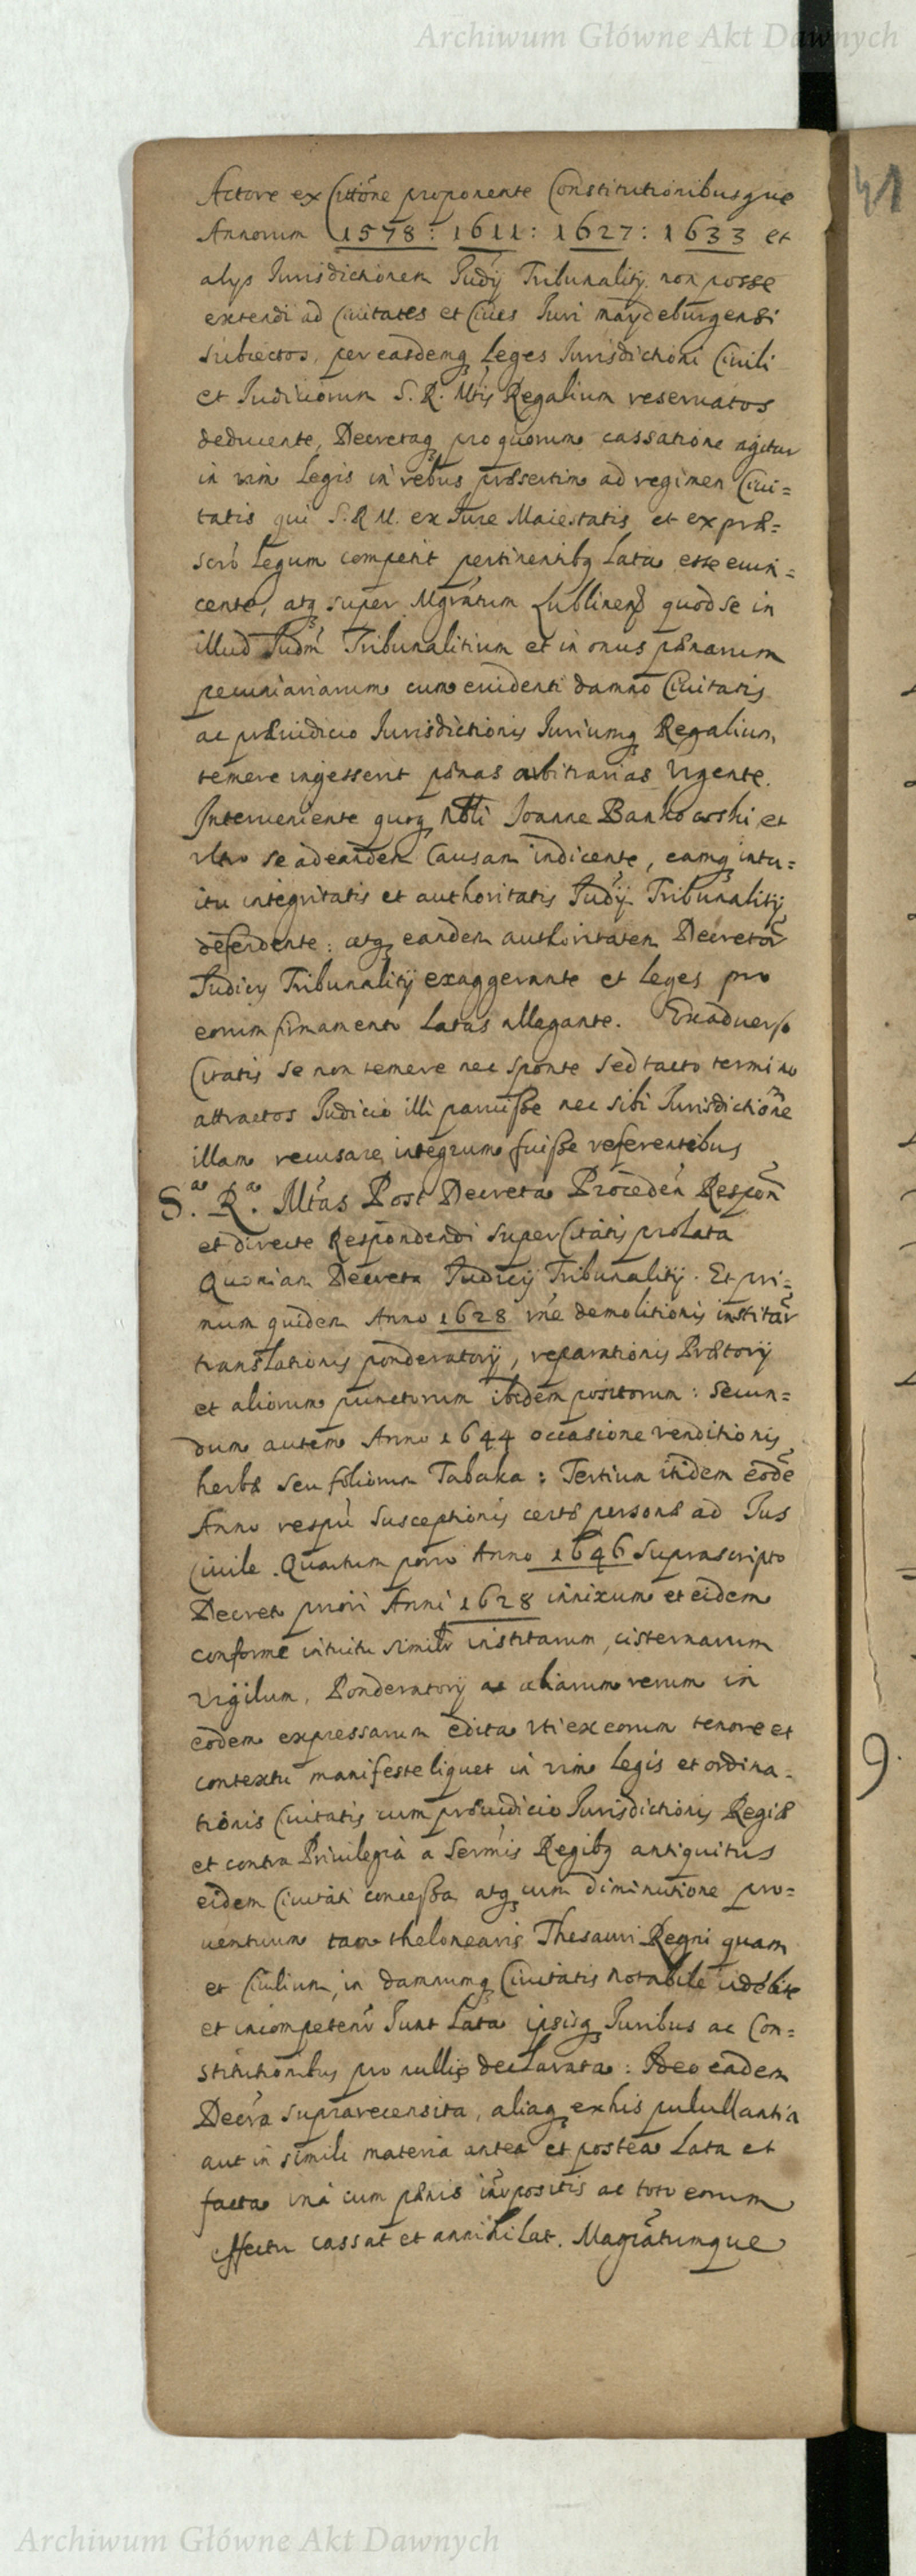 Archiwum Główne Akt Dawnych
Actore ex Cittône proponente Constitutionibusque
Annorum 1578: 1611: 1627: 1633 et
alys Jurisdictionem Judÿ Tribunalitÿ non posse
extendi ad Civitates et Cives Juri maydeburgensi
subiectos, per easdemq Leges Jurisdictioni Civili
et Judiciorum S. R. Mtis Regalium reservatos
deducente, Decretaq pro quorum cassatione agitur
in vim Legis in rebus præsertim ad regimen Civi=
tatis qui S. R M. ex Jure Maiestatis et ex præ=
scrò Legum competit pertinentibq Lata esse evin=
cente, atq super Mgratum Lublinens quod se in
illud Judm Tribunalitium et in onus pænarum
pecuniariarum cum evidenti damno Civitatis
ac præiudicio Jurisdictionis Juriumq Regalium,
temere ingesserit pænas arbitrarias Urgente.
Interveniente quoq Nbli Joanne Bankowski et
ultro se ad eandem Causam indicente, eamq intu=
itu integritatis et authoritatis Judÿ Tribunalitÿ
defendente: atq eandem authoritatem Decretor
Judicÿ Tribunalitÿ exaggerante et Leges pro
eorum firmamento Latas allegante. Ex adverso
Citatis se non temere nec sponte sed tacto termino
attractos Judicio illi paruiße nec sibi Jurisdictione
illam recusare integrum fuiße referentibus
S.a R.a Mtas Post Decreta Proceden Respon
et directe Respondendi super Citatis prolata
Quoniam Decreta Judicÿ Tribunalitÿ. Et pri=
mum quidem Anno 1628 rne demolitionis institar
translationis ponderatorÿ, reparationis Prætorÿ
et aliorum punctorum ibidem positorum: Secun=
dum autem Anno 1644 occasione venditionis
herbæ seu foliorum Tabaka: Tertium itidem eode
Anno respu susceptionis certæ personæ ad Jus
Civile. Quartum porro Anno 1646 Suprascripto
Decreto priori Anni 1628 innixum et eidem
conforme intuitu similr institarum, cisternarum
Vigilum, Ponderatorÿ ac aliarum rerum in
eodem expressarum edita Uti ex eorum tenore et
contextu manifeste liquet in vim Legis et ordina=
tionis Civitatis cum præiudicio Jurisdictionis Regiæ
et contra Privilegia a Sermis Regibq antiquitus
eidem Civitati conceßa atq cum diminutione pro=
ventuum tam thelonearis Thesauri Regni quam
et Civilium, in damnumq Civitatis notabile indebite
et incompetenr Sunt Lata ipsisq Juribus ac Con=
stitutionibus pro nullis declarata: Ideo eadem
Decra supravecensita, aliaq ex his pulullantia
aut in simili materia antea et postea Lata et
facta una cum pænis impositis ac toto eorum
effectu cassat et annihilat. Magratumque
9.
Archiwum Główne Akt Dawnych